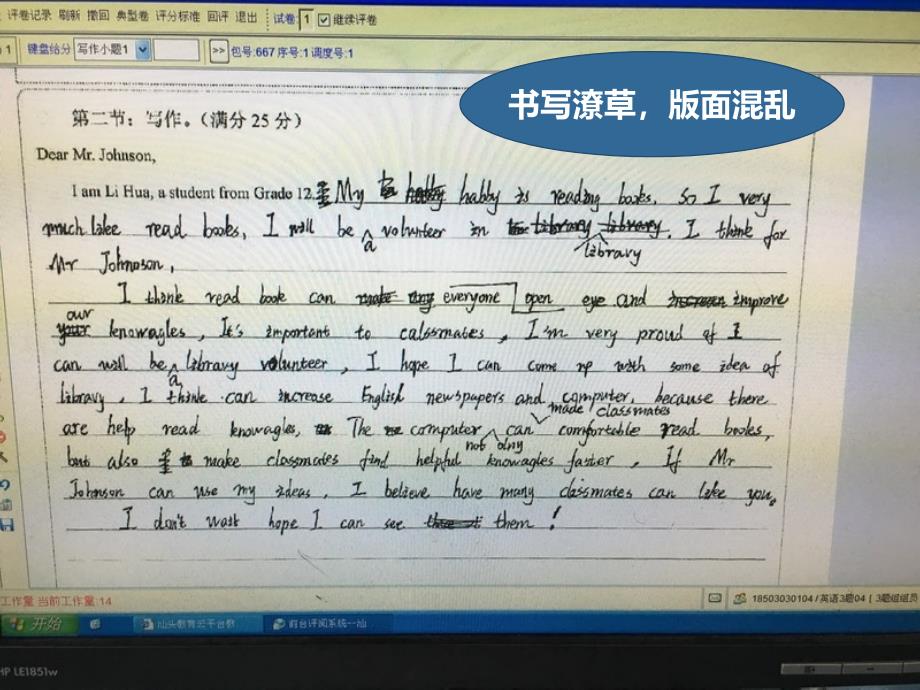 评卷记录 刷新 撤回 典型卷 评分标准 回评 退出 试卷: 1 继续评卷
键盘给分 写作小题1 >> 包号:667 序号:1 调度号:1
书写潦草，版面混乱
第二节：写作。（满分 25 分）
Dear Mr. Johnson,
I am Li Hua, a student from Grade 12. My habby is reading books, so I very
much like read books, I will be a volunteer in library. I think for
Mr Johnoson,
I think read book can everyone open eye and improve
our knowagles, It's important to calssmates, I'm very proud of I
can will be a library volunteer, I hope I can come up with some idea of
library, I think can increase English newspapers and computer, because there
are help read knowagles, The computer not olny can made classmates comfortable read books,
but also make classmates find helpful knowagles faster, If Mr
Johnson can use my ideas, I believe have many classmates can like you.
I don't wait hope I can see them!
工作量 当前工作量:14
18503030104 / 英语3题04 [ 3题组组员
开始 汕头教育云平台数 前台评阅系统--汕
HP LE1851w